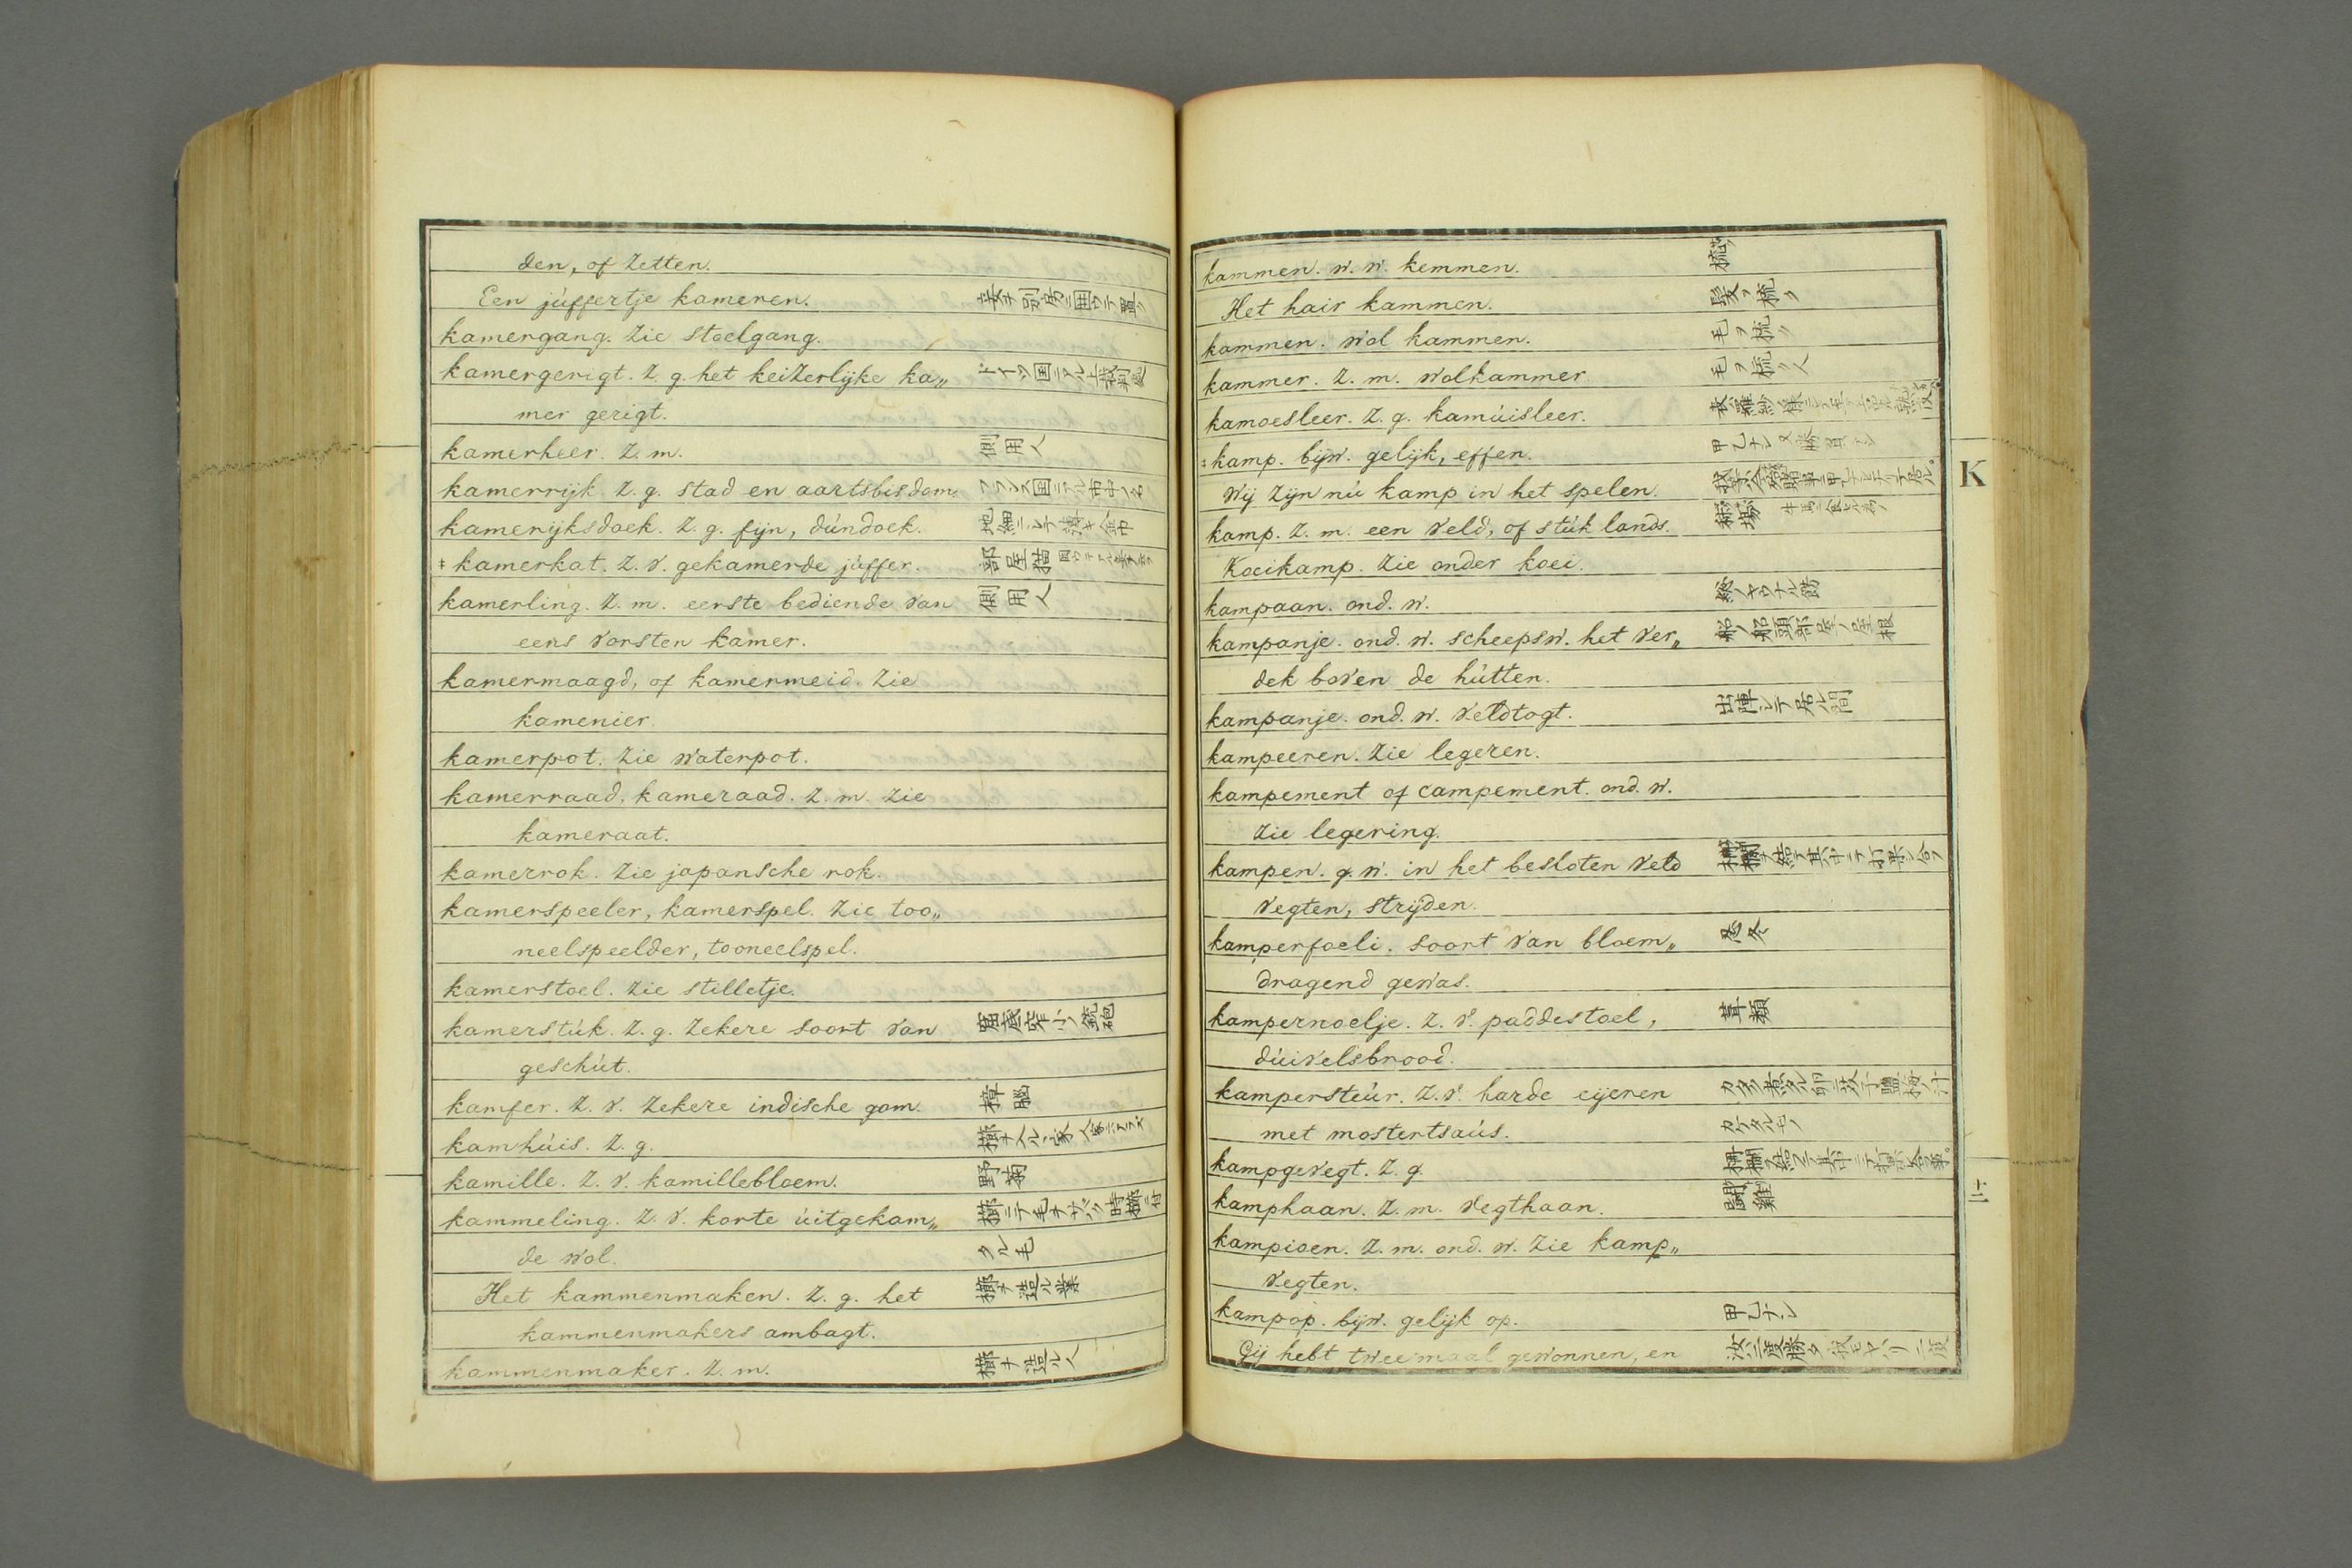 den, of zetten.
Een júffertje kameren. 妾ヲ別房ニ囲ウテ置ク
kamergang. zie stoelgang.
kamergerigt. z. g. het keizerlijke ka„ ドイツ国ニアル上裁判處
mer gerigt.
kamerheer. z. m. 側用人
kamerrijk. z. g. stad en aartsbisdom. フランス国ニアル市中ノ名
kamerijksdoek. z. g. fijn, dúndoek. 地細ニシテ薄キ
‡ kamerkat. z. v. gekamerde júffer. 部屋猫
kamerling. z. m. eerste bediende van 側用人
eens vorsten kamer.
kamermaagd, of kamermeid. zie
kamenier.
kamerpot. zie waterpot.
kamerraad, kameraad. z. m. zie
kameraat.
kamerrok. zie japansche rok.
kamerspeeler, kamerspel. zie too„
neelspeelder, tooneelspel.
kamerstoel. zie stilletje.
kamerstúk. z. g. zekere soort van 底窄小ノ銃砲
geschút.
kamfer. z. v. zekere indische gom. 樟脳
kamhúis. z. g. 櫛ヲ入ル
kamille. z. v. kamillebloem. 野菊
kammeling. z. v. korte úitgekam„ 櫛ニテ毛ヲサバク時櫛ニ付
de wol. タル毛
Het kammenmaken. z. g. het 櫛ヲ造ル業
kammenmakers ambagt.
kammenmaker. z. m. 櫛ヲ造ル人
kammen. w. w. kemmen. 梳ル
Het hair kammen. 髪ヲ梳ク
kammen. wol kammen. 毛ヲ梳ク
kammer. z. m. wolkammer 毛ヲ梳ク人
kamoesleer. z. g. kamúisleer.
‡ kamp. bijw. gelijk, effen. 甲乙ナシ又勝負ナシ
Wij zijn nú kamp in het spelen.
K
kamp. z. m. een veld, of stúk lands.
Koeikamp. zie onder koei.
kampaan. ond. w.
kampanje. ond. w. scheepsw. het ver„ 船ノ船頭部屋ノ屋根
dek boven de hútten.
kampanje. ond. w. veldtogt. 出陣シテ居ル間
kampeeren. zie legeren.
kampement of campement. ond. w.
zie legering.
kampen. g. w. in het besloten veld 柵欄ヲ結ヒ其中ニテ打果シ合フ
vegten, strijden.
kamperfoeli. soort van bloem„ 忍冬
dragend gewas.
kampernoelje. z. v. paddestoel, 茸類
dúivelsbrood.
kampersteúr. z. v. harde eijeren カタク煮タル卵ニ芥子醢梅ノ汁
met mostertsaús. カケタルモノ
kampgevegt. z. g.
kamphaan. z. m. vegthaan. 闘雞
kampioen. z. m. ond. w. zie kamp„
vegten.
kampop. bijw. gelijk op. 甲乙ナシ
Gij hebt tweemaal gewonnen, en 汝二度勝タ我モヤハリ二度